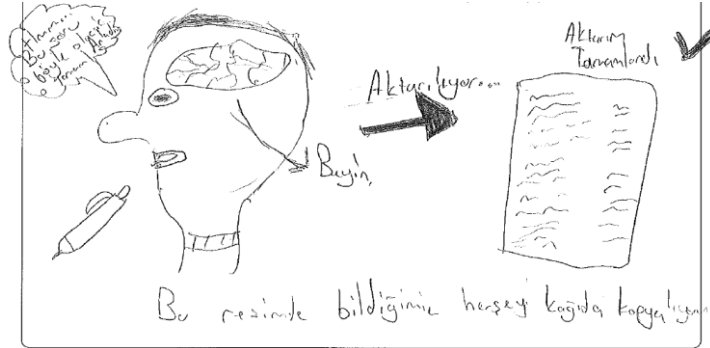 Hmm...
Bu soru
böyle oluyor
Tamam Anladım
Aktarılıyor...
Beyin
Aktarım
Tamamlandı
Bu resimde bildiğimiz herşeyi kağıda kopyalıyoruz